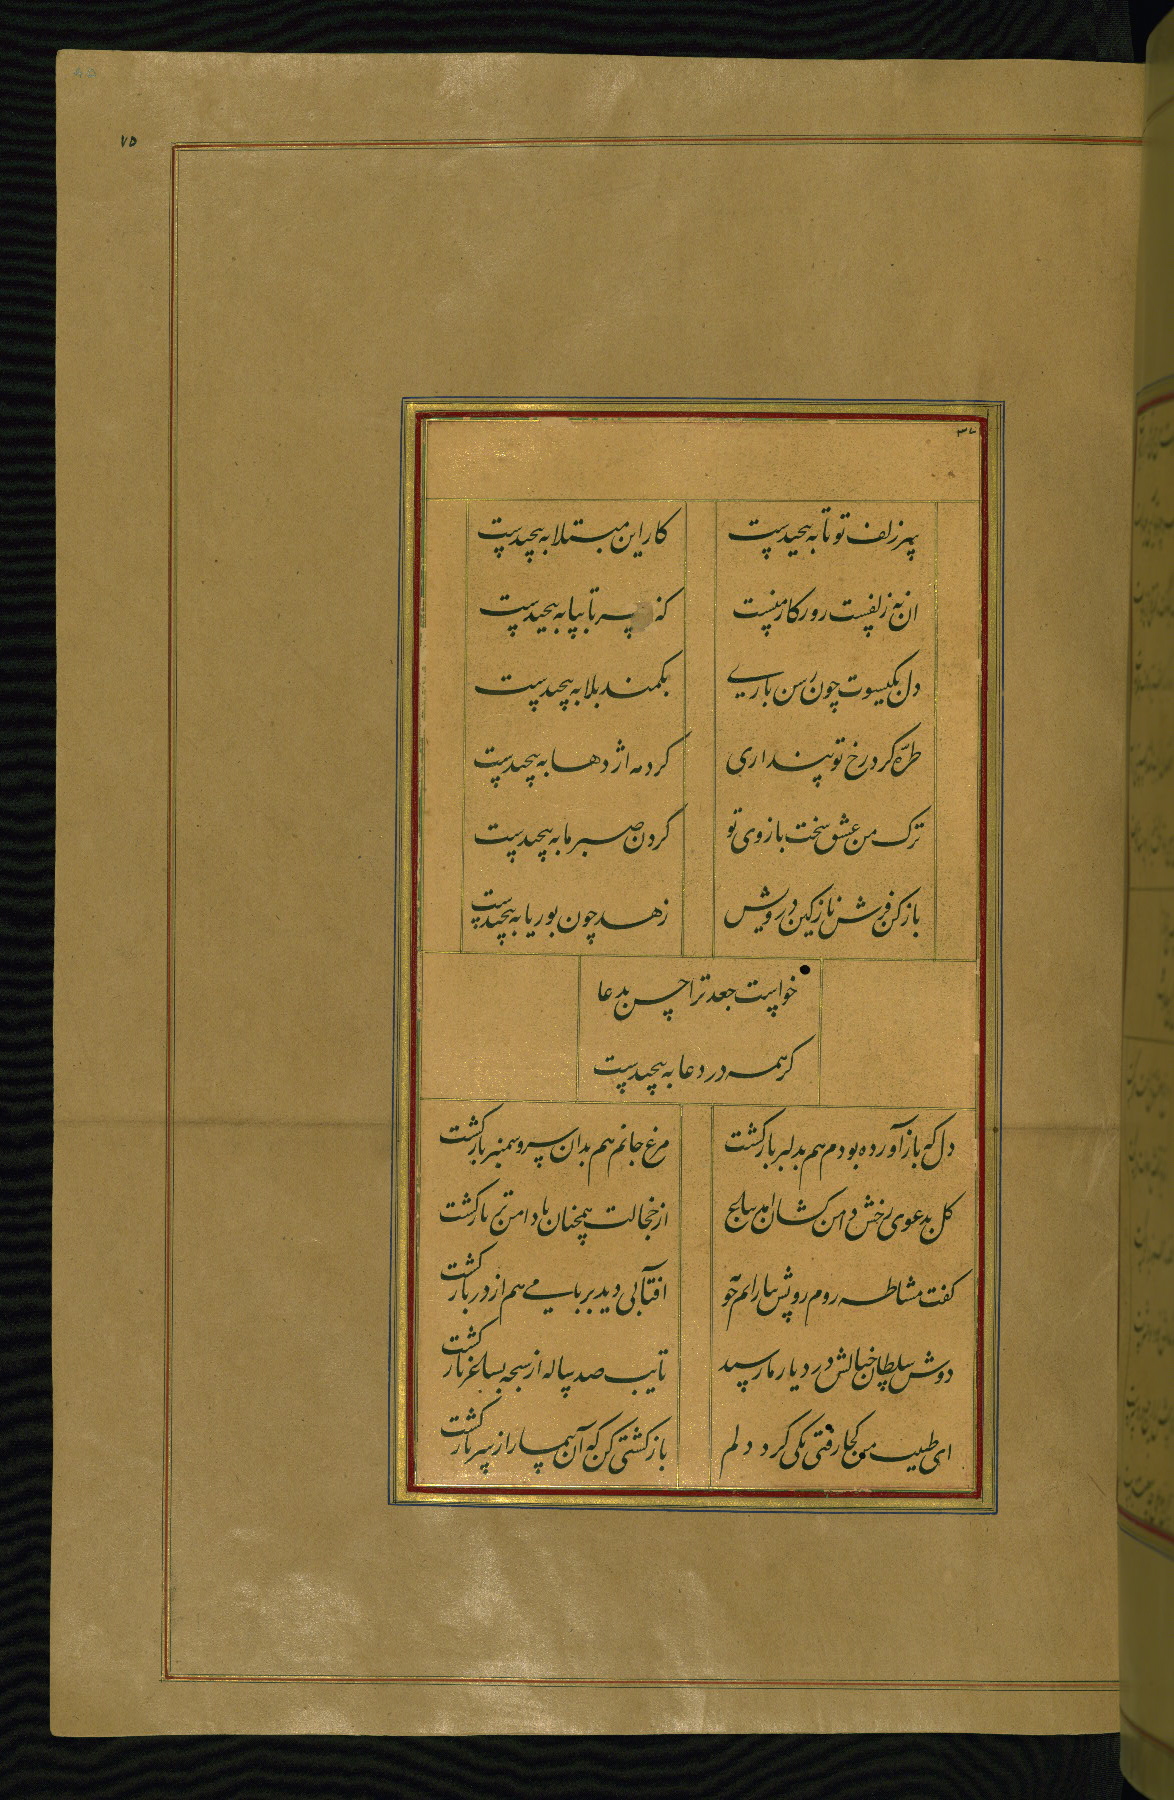 ۷۵
۳۷
سر زلف تو تا به پیچیدست
کار این مبتلا به پیچیدست
ان نه زلفست روزکار منست
که سر تا بپا به پیچیدست
دل بکیسوت چون رسن بازی
بکمند بلا به پیچیدست
طرّه کرد رخ تو پنداری
کرد مه اژدها به پیچیدست
ترک من عشق سخت بازوی تو
کردن صبر ما به پیچیدست
باز کن فرش ناز کین درویش
زهد چون بوریا به پیچیدست
خواست جعد ترا حسن بدعا
کرهمه در دعا به پیچیدست
دل که باز آورده بودم هم بدلبر بازکشت
مرغ جانم هم بدان سرو سمنبر بازکشت
کل بدعوی رخش دامن کشان امد بباغ
از خجالت همچنان با دامن تر بازکشت
کفت مشاطه روم رویش بیارایم چو
افتابی دید بر بامی هم از در بازکشت
دوش سلطان خیالش در دیار ما رسید
تایب صد ساله از سبحه بساغر بازکشت
ای طبیب من کجا رفتی یکی کرد دلم
بازکشتی کن که آن بیمار از سر بازکشت